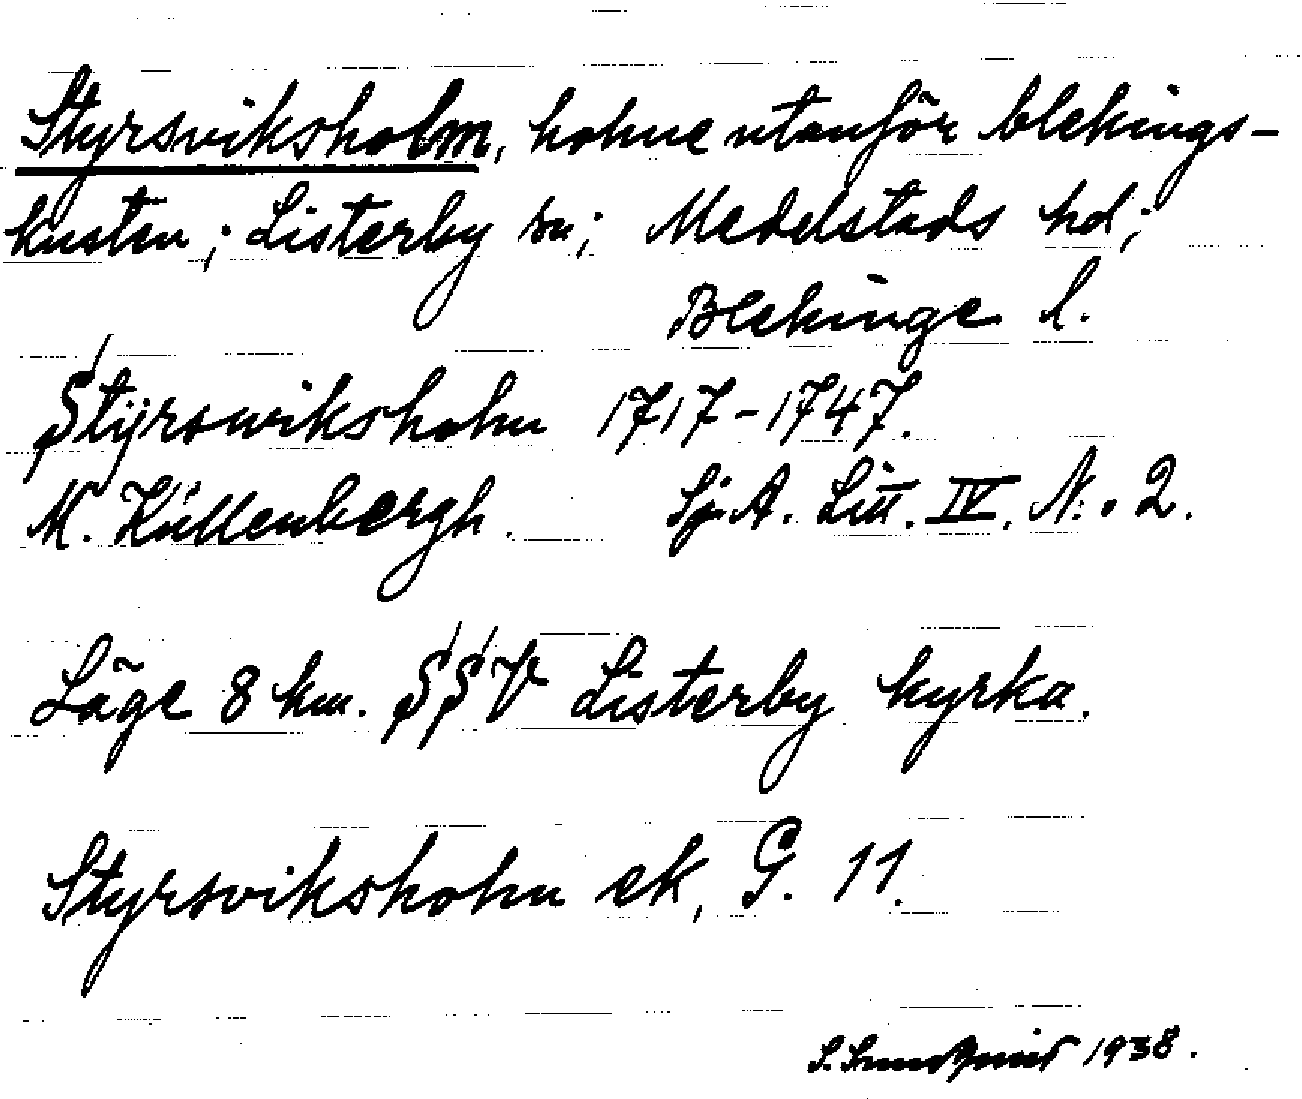 Styrsviksholm, holme utanför blekings-
kusten; Listerby sn; Medelstads hd;
Blekinge l.
Stÿrswiksholm 1717-1747.
M. Küllenbergh. Sj. A. Litt. IV. N:o 2.
Läge 8 km. SSV Listerby kyrka.
Styrsviksholm ek, G. 11.
S. Sundqvist 1938.